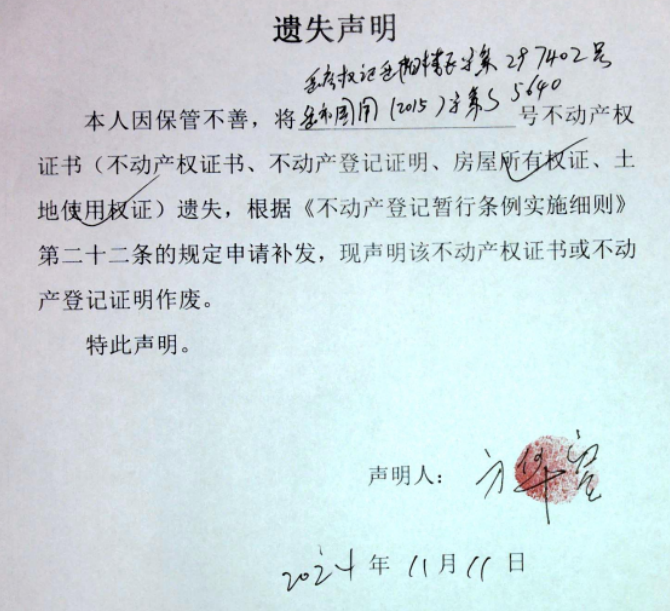 遗失声明
岳房权记岳阳楼区字第297402号
本人因保管不善，将岳市国用(2015)字第S5640号不动产权
证书（不动产权证书、不动产登记证明、房屋所有权证、土
地使用权证）遗失，根据《不动产登记暂行条例实施细则》
第二十二条的规定申请补发，现声明该不动产权证书或不动
产登记证明作废。
特此声明。
声明人：方华
2024年11月11日